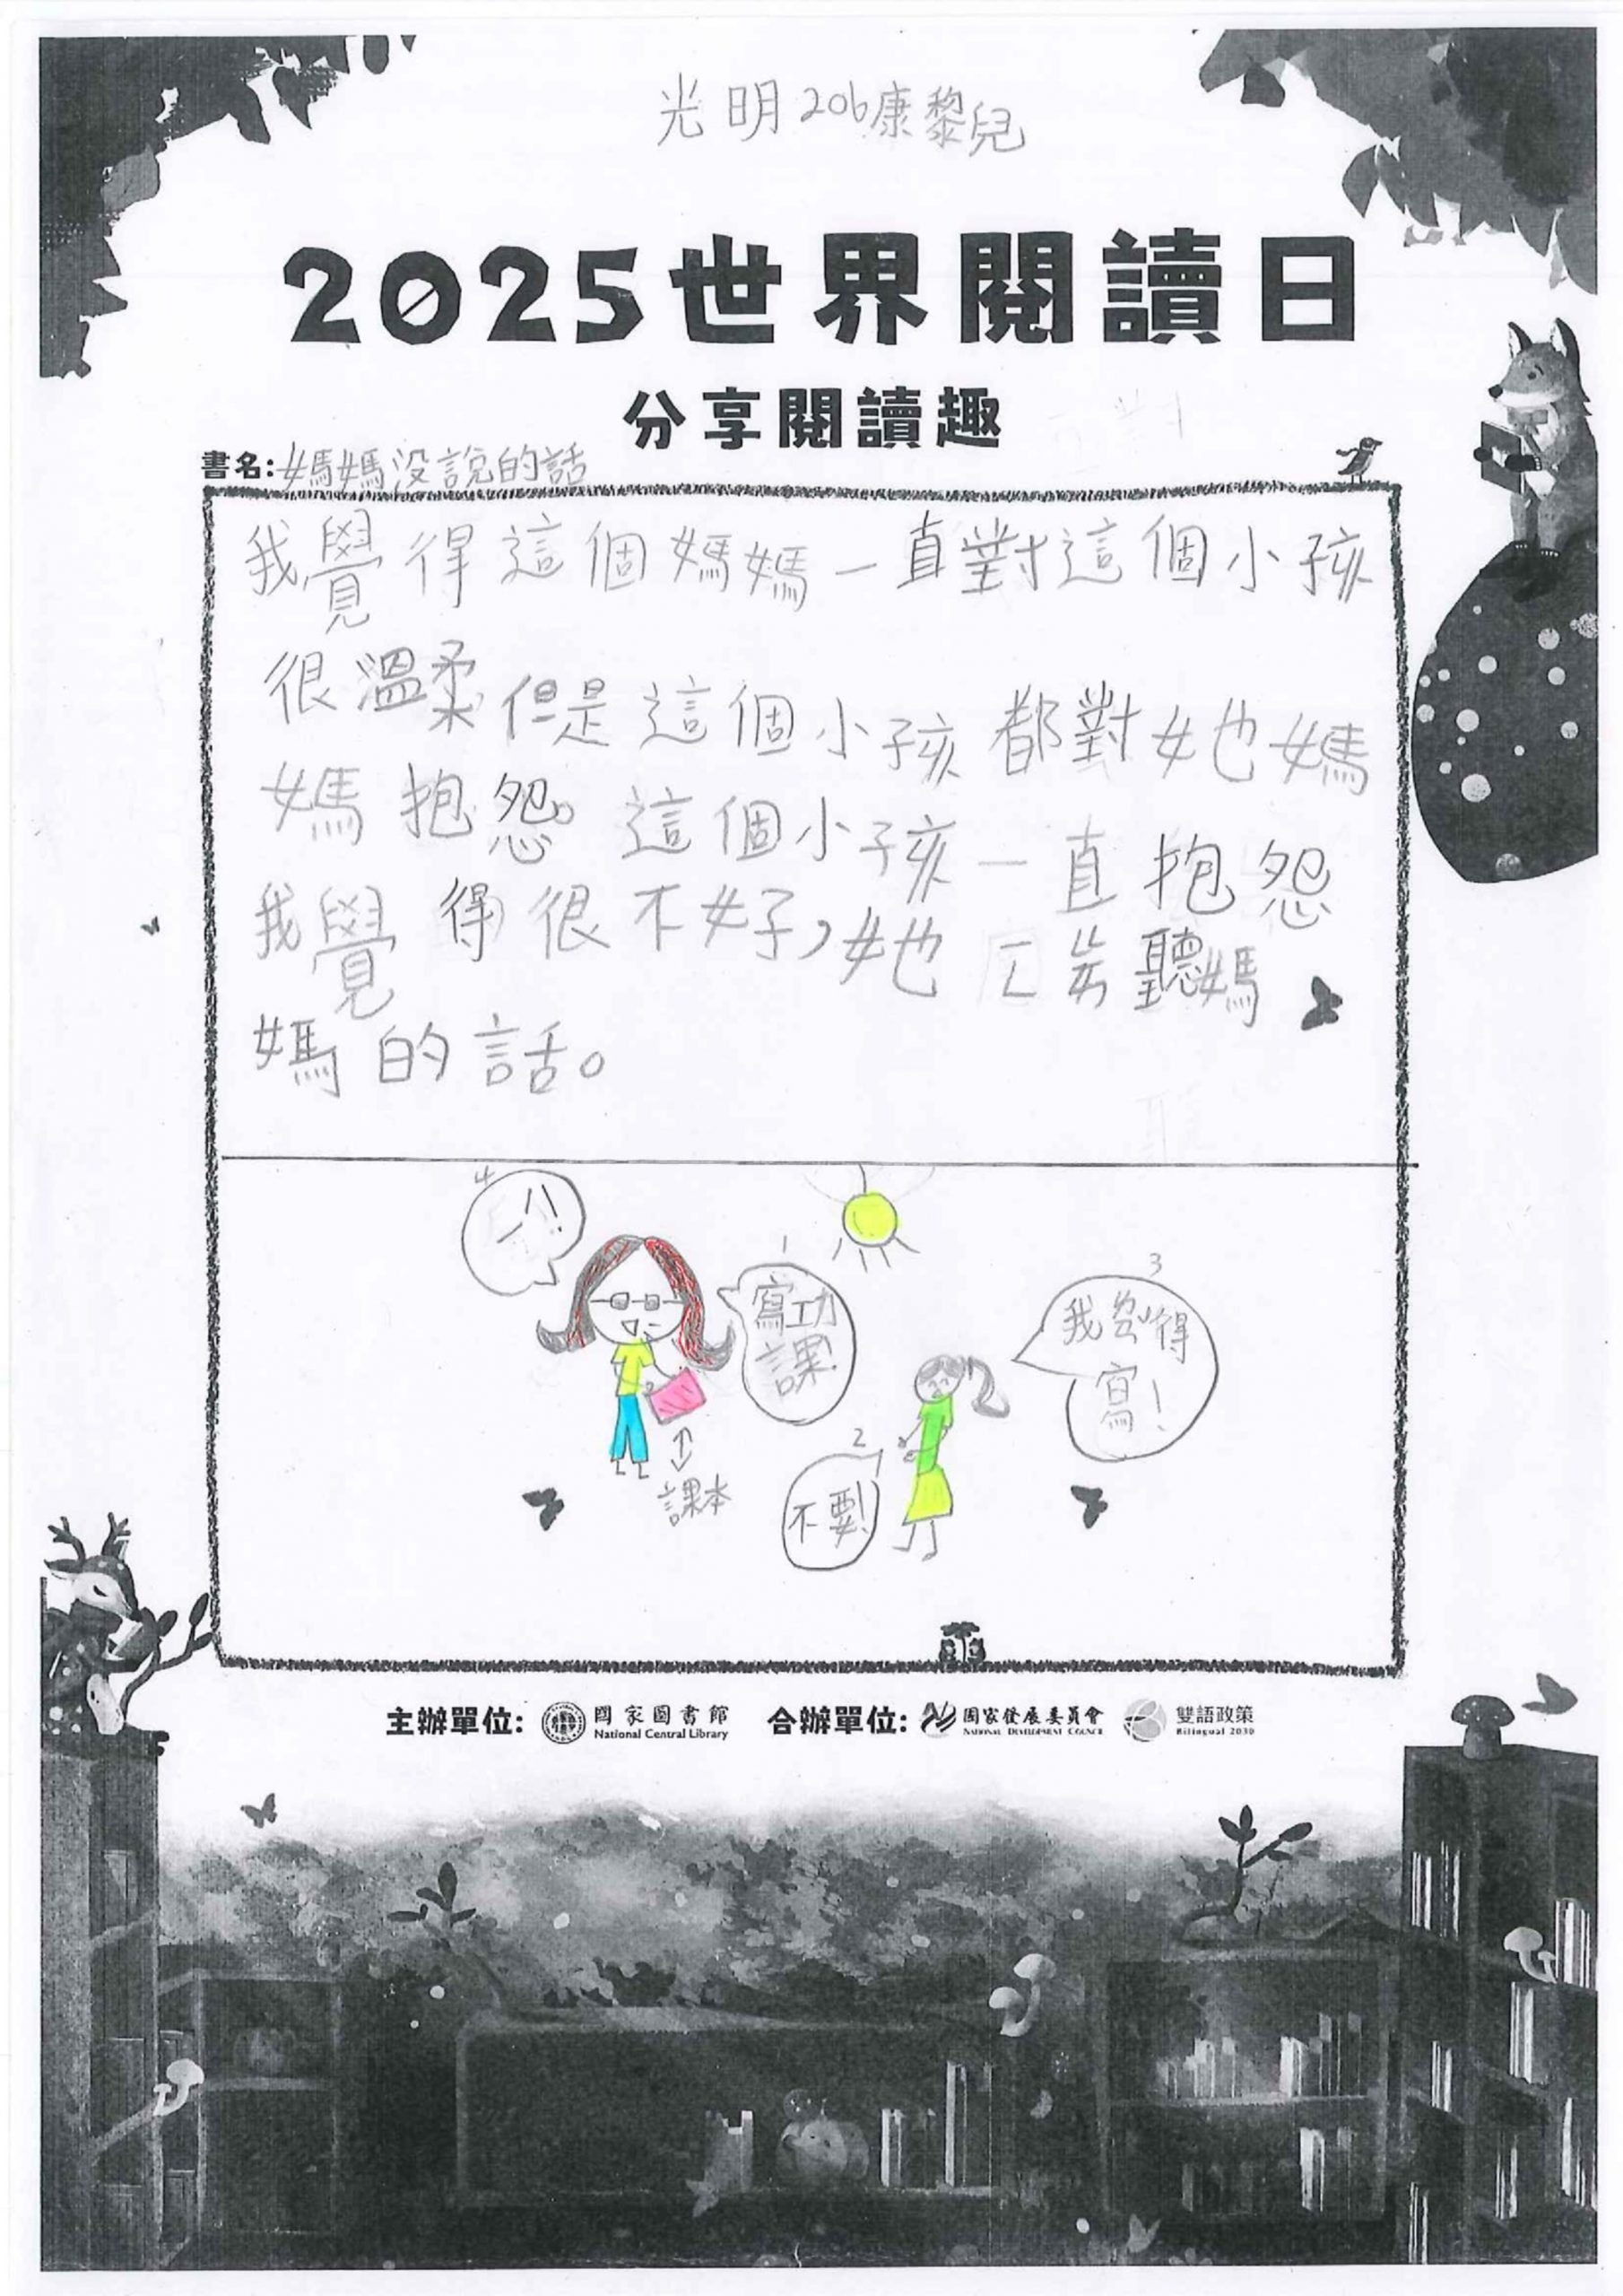 光明206康黎兒
2025世界閱讀日
分享閱讀趣
書名:媽媽沒說的話
我覺得這個媽媽一直對這個小孩
很溫柔但是這個小孩都對她媽
媽抱怨。這個小孩一直抱怨
我覺得很不好,她聽媽
媽的話。
4
1
寫功
課!
3
我得
寫!
2
不要!
課本
主辦單位: 國家圖書館 National Central Library 合辦單位: 國家發展委員會 NATIONAL DEVELOPMENT COUNCIL 雙語政策 Bilingual 2030